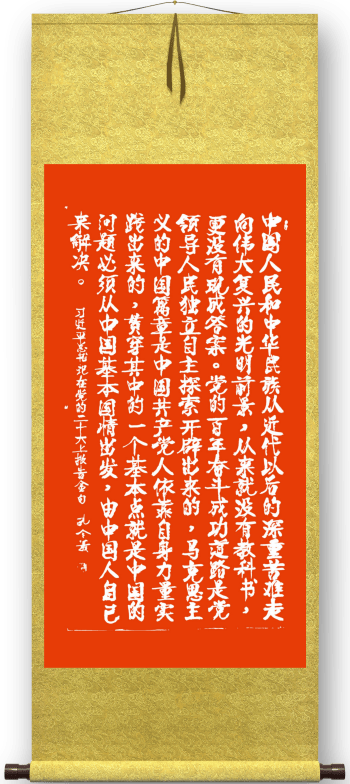 中国人民和中华民族从近代以后的深重苦难走
向伟大复兴的光明前景，从来就没有教科书，
更没有现成答案。党的百年奋斗成功道路是党
领导人民独立自主探索开辟出来的，马克思主
义的中国篇章是中国共产党人依靠自身力量实
践出来的，贯穿其中的一个基本点就是中国的
问题必须从中国基本国情出发，由中国人自己
来解决。
习近平总书记在党的二十大上报告金句